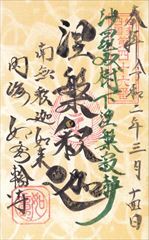 奉拝 令和二年三月十四日
沙羅双樹下涅槃寂静
涅槃釈迦
南無釈迦如来
如意輪寺